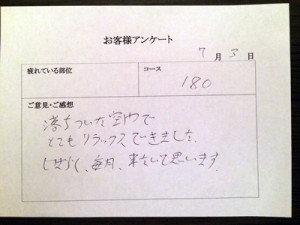 お客様アンケート
7月3日
疲れている部位
コース
180
ご意見・ご感想
落ちついた空間で
とてもリラックスできました。
しばらく、毎月、来たいと思います。